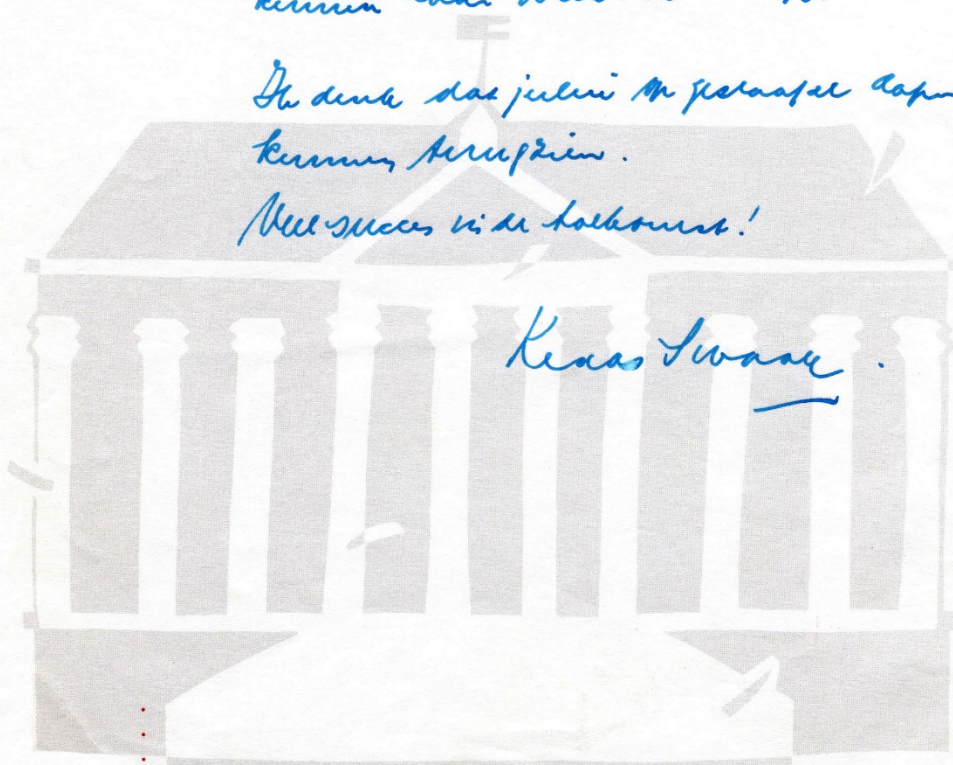 kunnen
Ik denk dat jullie op geslaagde dagen
kunnen terugzien.
Veel succes in de toekomst!
Klaas Swaak.